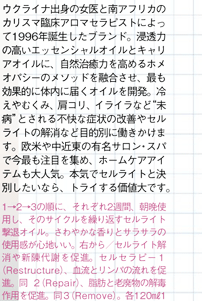 ウクライナ出身の女医と南アフリカの
カリスマ臨床アロマセラピストによっ
て1996年誕生したブランド。浸透力
の高いエッセンシャルオイルとキャリ
アオイルに、自然治癒力を高めるホメ
オパシーのメソッドを融合させ、最も
効果的に体内に届くオイルを開発。冷
えやむくみ、肩コリ、イライラなど“未
病”とされる不快な症状の改善やセル
ライトの解消など目的別に働きかけま
す。欧米や中近東の有名サロン・スパ
で今最も注目を集め、ホームケアアイ
テムも大人気。本気でセルライトと決
別したいなら、トライする価値大です。
1→2→3の順に、それぞれ2週間、朝晩使
用し、そのサイクルを繰り返すセルライト
撃退オイル。さわやかな香りとサラサラの
使用感が心地いい。右から／セルライト解
消や新陳代謝を促進。セルセラピー1
(Restructure)、血流とリンパの流れを促
進。同 2（Repair）、脂肪と老廃物の解毒
作用を促進。同3(Remove)。各120㎖1